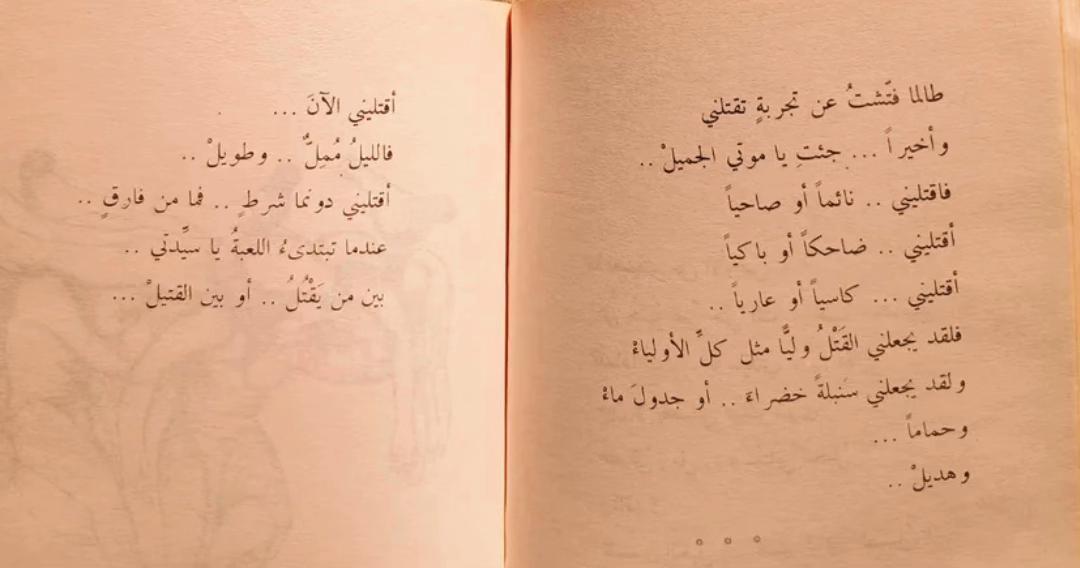 طالما فتّشتُ عن تجربةٍ تقتلني
وأخيراً ... جئتِ يا موتي الجميلْ ..
فاقتليني .. نائماً أو صاحياً
أقتليني .. ضاحكاً أو باكياً
أقتليني ... كاسياً أو عارياً ..
فلقد يجعلني القَتْلُ وليًّا مثل كلِّ الأولياءْ
ولقد يجعلني سَنبلةً خضراءَ .. أو جدولَ ماءْ
وحماماً ...
وهديلْ ..
أقتليني الآنَ ...
فالليلُ مُمِلٌّ .. وطويلْ ..
أقتليني دونما شرطٍ .. فما من فارقٍ ..
عندما تبتدىءُ اللعبةُ يا سيِّدتي ..
بين من يَقْتُلُ .. أو بين القتيلْ ...